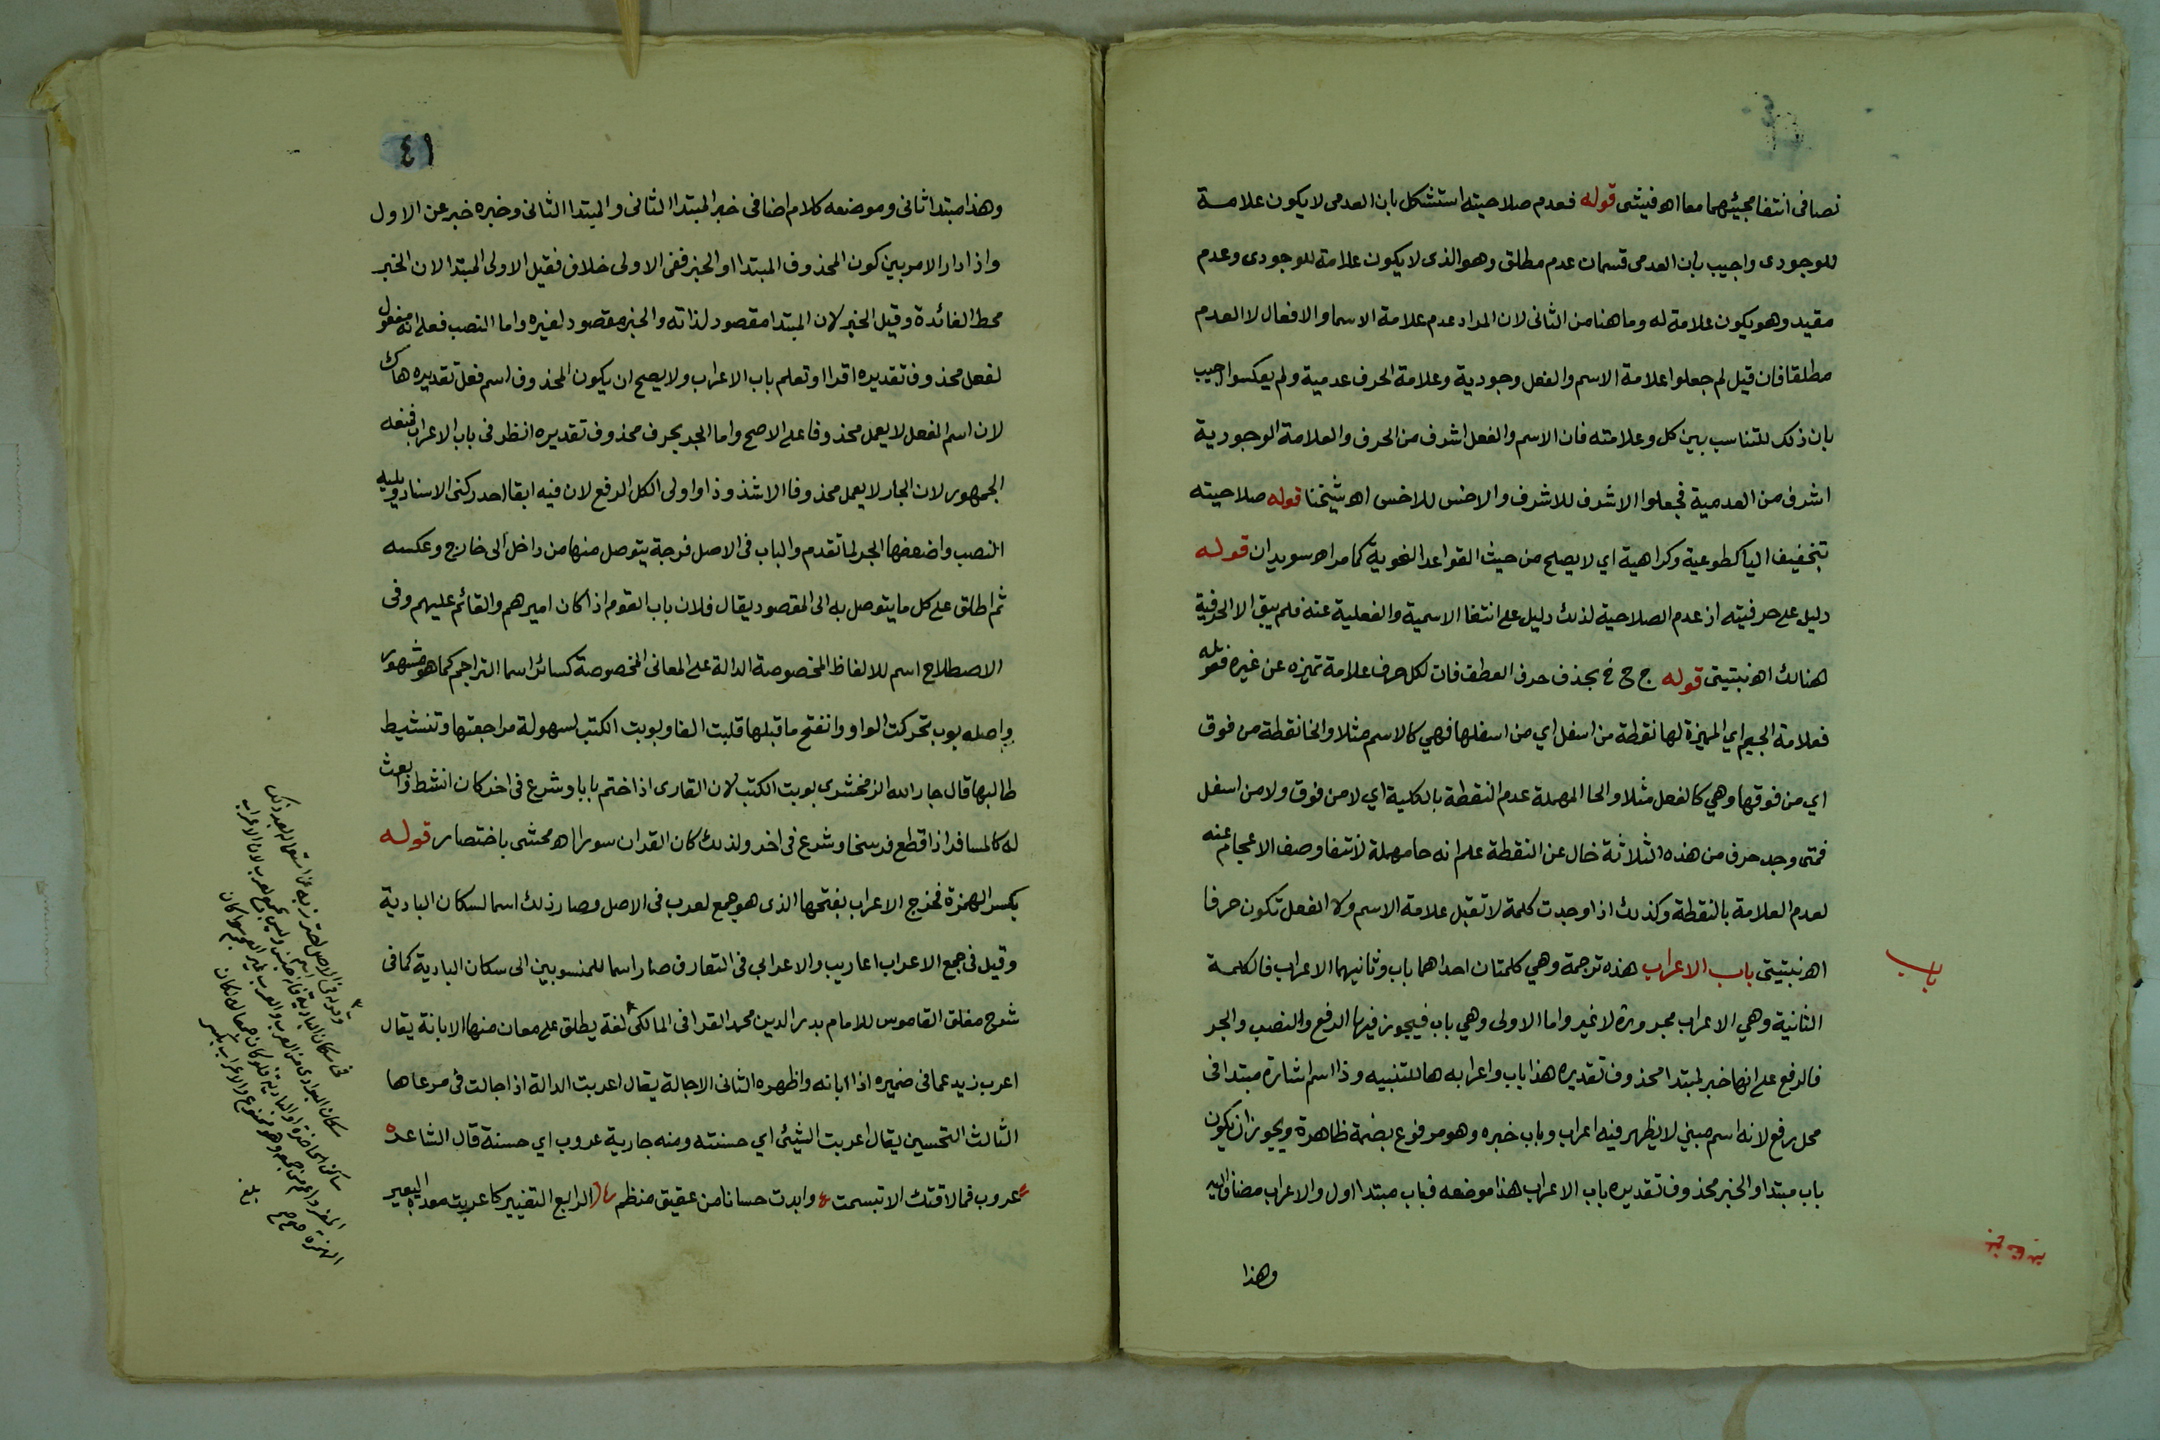 نصا فى انتفا مجيئهما معا اهـ فيشى قوله فعدم صلاحيته استشكل بان العدمى لا يكون علامة
للوجودى واجيب بان العدمى قسمان عدم مطلق وهو الذى لا يكون علامة للوجودى وعدم
مقيد وهو يكون علامة له وما هنا من الثانى لان المراد عدم علامة الاسما والافعال لا العدم
مطلقا فان قيل لم جعلوا علامة الاسم والفعل وجودية وعلامة الحرف عدمية ولم يعكسوا اجيب
بان ذلك للتناسب بين كل وعلامته فان الاسم والفعل اشرف من الحرف والعلامة الوجودية
اشرف من العدمية فجعلوا الاشرف للاشرف والاخس للاخس اهـ شيخنا قوله صلاحيته
بتخفيف اليا كطوعية وكراهية اي لا يصلح من حيث القواعد النحوية كما مر اهـ سويدان قوله
دليل على حرفيته اذ عدم الصلاحية لذلك دليل على انتفا الاسمية والفعلية عنه فلم يبق الا الحرفية
هنالك اهـ نبتيتى قوله ج ح خ بحذف حرف العطف فان لكل حرف علامة تميزه عن غيره فقوله
فعلامة الجيم اي المميزة لها نقطة من اسفل اي من اسفلها فهي كالاسم مثلا والخا نقطة من فوق
اي من فوقها وهي كالفعل مثلا والحا المهملة عدم النقطة بالكلية اي لا من فوق ولا من اسفل
فمتى وجد حرف من هذه الثلاثة خال عن النقطة علم انه حا مهملة لانتفا وصف الاعجام عنه
لعدم العلامة بالنقطة وكذلك اذا وجدت كلمة لا تقبل علامة الاسم ولا الفعل تكون حرفا
اهـ نبتيتى باب الاعراب هذه ترجمة وهي كلمتان احداهما باب وثانيهما الاعراب فالكلمة
باب
الثانية وهي الاعراب مجرورة لا غير واما الاولى وهي باب فيجوز فيها الرفع والنصب والجر
فالرفع على انها خبر لمبتدا محذوف تقديره هذا باب واعرابه ها للتنبيه وذا اسم اشارة مبتدا فى
محل رفع لانه اسم مبني لا يظهر فيه اعراب وباب خبره وهو مرفوع بضمة ظاهرة ويجوز ان يكون
باب مبتدا والخبر محذوف تقديره باب الاعراب هذا موضعه فباب مبتدا اول والاعراب مضاف اليه
وهذا
٤١
وهذا مبتدا ثانى وموضعه كلام اضافى خبر المبتدا الثانى والمبتدا الثانى وخبره خبر عن الاول
واذا دار الامر بين كون المحذوف المبتدا او الخبر ففى الاولى خلاف فقيل الاولى المبتدا لان الخبر
محط الفائدة وقيل الخبر لان المبتدا مقصود لذاته والخبر مقصود لغيره واما النصب فعلى انه مفعول
لفعل محذوف تقديره اقرا او تعلم باب الاعراب ولا يصح ان يكون المحذوف اسم فعل تقديره هاك
لان اسم الفعل لا يعمل محذوفا على الاصح واما الجر بحرف محذوف تقديره انظر فى باب الاعراب فمنعه
الجمهور لان الجار لا يعمل محذوفا الا شذوذا واولى الكل الرفع لان فيه ابقا احد ركنى الاسناد ويليه
النصب واضعفها الجر لما تقدم والباب فى الاصل فرجة يتوصل منها من داخل الى خارج وعكسه
ثم اطلق على كل ما يتوصل به الى المقصود يقال فلان باب القوم اذا كان اميرهم والقائم عليهم وفى
الاصطلاح اسم للالفاظ المخصوصة الدالة على المعانى المخصوصة كسائر اسما التراجم كما هو مشهور
واصله بوب تحركت الواو وانفتح ما قبلها قلبت الفا وبوبت الكتب لسهولة مراجعتها وتنشيط
طالبها قال جار الله الزمخشرى بوبت الكتب لان القارى اذا ختم بابا وشرع فى اخر كان انشط وابعث
له كالمسافر اذا قطع فرسخا وشرع فى اخر ولذلك كان القران سورا اهـ محشى باختصار قوله
بكسر الهمزة فخرج الاعراب بفتحها الذى هو جمع لعرب فى الاصل وصار ذلك اسما لسكان البادية
وقيل فى جمع الاعراب اعاريب والاعرابي فى التعارف صار اسما للمنسوبين الى سكان البادية كما فى
شرح مغلق القاموس للامام بدر الدين محمد القرافى المالكى لغة يطلق على معان منها الابانة يقال
اعرب زيد عما فى ضميره اذا ابانه واظهره الثانى الاجالة يقال اعربت الدالة اذا جالت فى مرعاها
الثالث التحسين يقال اعربت الشيئ اي حسنته ومنه جارية عروب اي حسنة قال الشاعر
عروب فما لاقتك الا تبسمت وابدت حسانا من عقيق منظم الرابع التغيير كاعربت معدة البعير